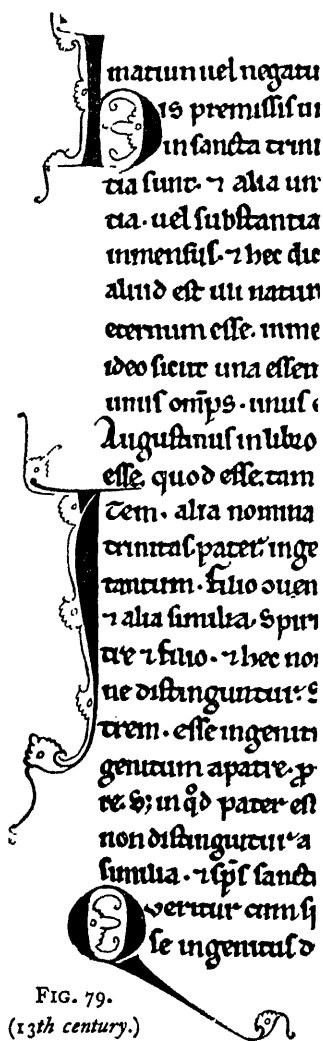 matiun uel negatu
his premissis un
in sancta trini
tia sunt. ⁊ alia un
tia. uel substantia
inmensus. ⁊ hec dic
aliud est illi natura
eternum esse. inme
ideo sicut una essen
unus omps. unus
Augustinus in libro
esse. quod esse. tam
Item. alia nomina
trinitas. pater inge
tantum. filio conuen
⁊ alia similia. Spiri
tre ⁊ filio. ⁊ hec noi
ne distinguntur.
trem. esse ingeniti
genitum a patre. p
re. S; in qd pater est
non distinguitur a
similia. ⁊ sps sancti
Queritur cum si
se ingenitus d
FIG. 79.
(13th century.)